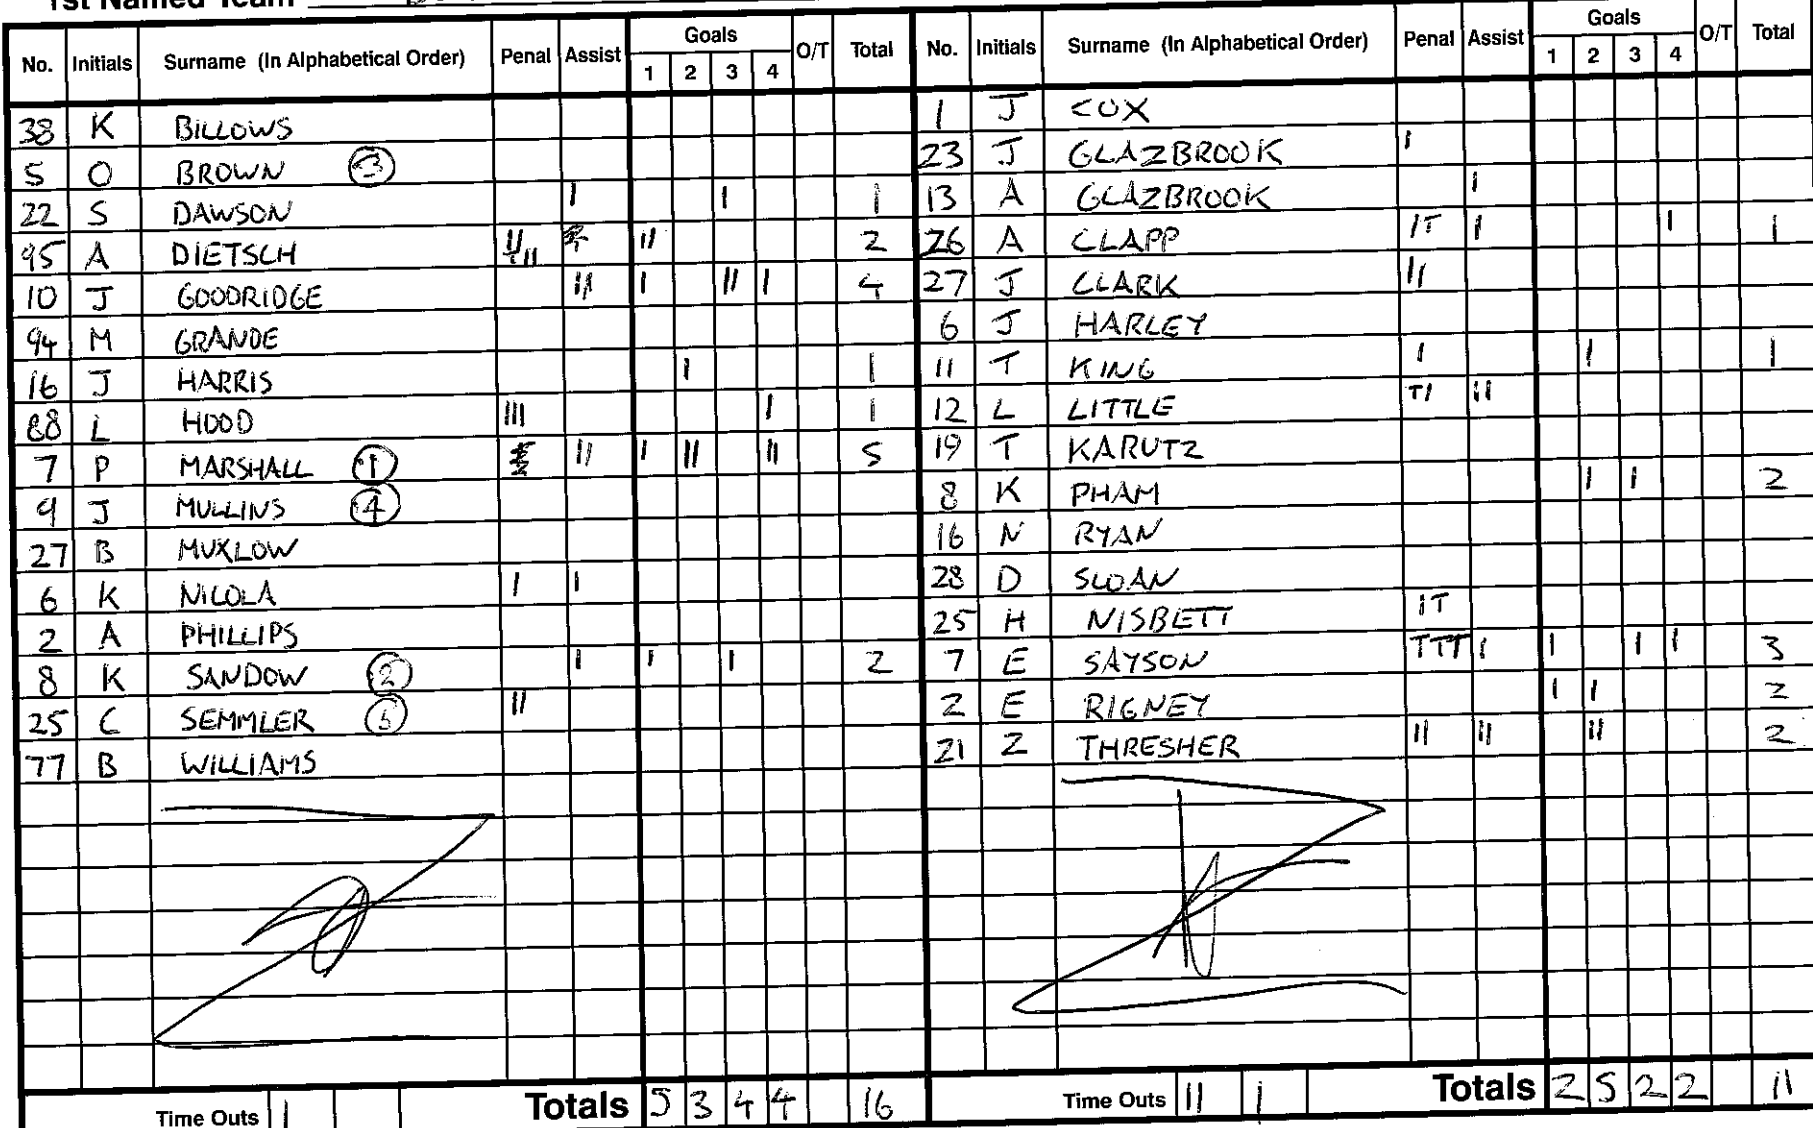 1st Named Team
No. Initials Surname (In Alphabetical Order) Penal Assist Goals 1 2 3 4 O/T Total
38 K BILLOWS
5 O BROWN 3
22 S DAWSON I I 1
95 A DIETSCH II 2
10 J GOODRIDGE II I II I 4
94 M GRANDE
16 J HARRIS I 1
88 L HOOD III I 1
7 P MARSHALL 1 II I II II 5
9 J MULLINS 4
27 B MUXLOW
6 K NICOLA I I
2 A PHILLIPS
8 K SANDOW 2 I I I 2
25 C SEMMLER 5 II
77 B WILLIAMS
Time Outs I Totals 5 3 4 4 16
No. Initials Surname (In Alphabetical Order) Penal Assist Goals 1 2 3 4 O/T Total
1 J COX
23 J GLAZBROOK I
13 A GLAZBROOK I
26 A CLAPP IT I I 1
27 J CLARK II
6 J HARLEY
11 T KING I I 1
12 L LITTLE TI II
19 T KARUTZ
8 K PHAM I I 2
16 N RYAN
28 D SLOAN
25 H NISBETT IT
7 E SAYSON TTT I I I I 3
2 E RIGNEY I I 2
21 Z THRESHER II II II 2
Time Outs II I Totals 2 5 2 2 11